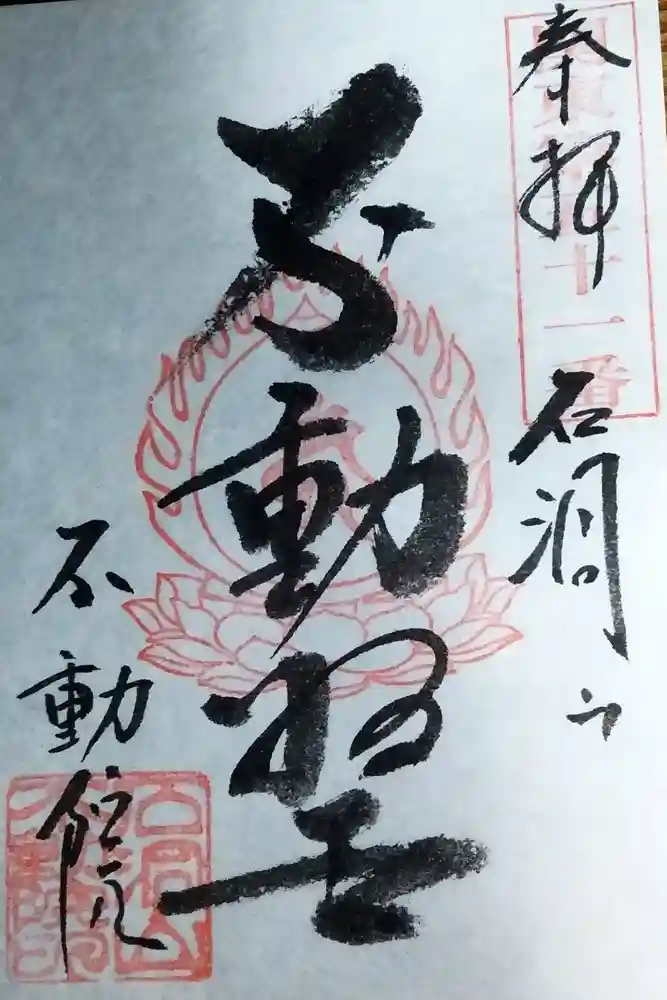 奉拝
十一番
石洞山
不動明王
不動院